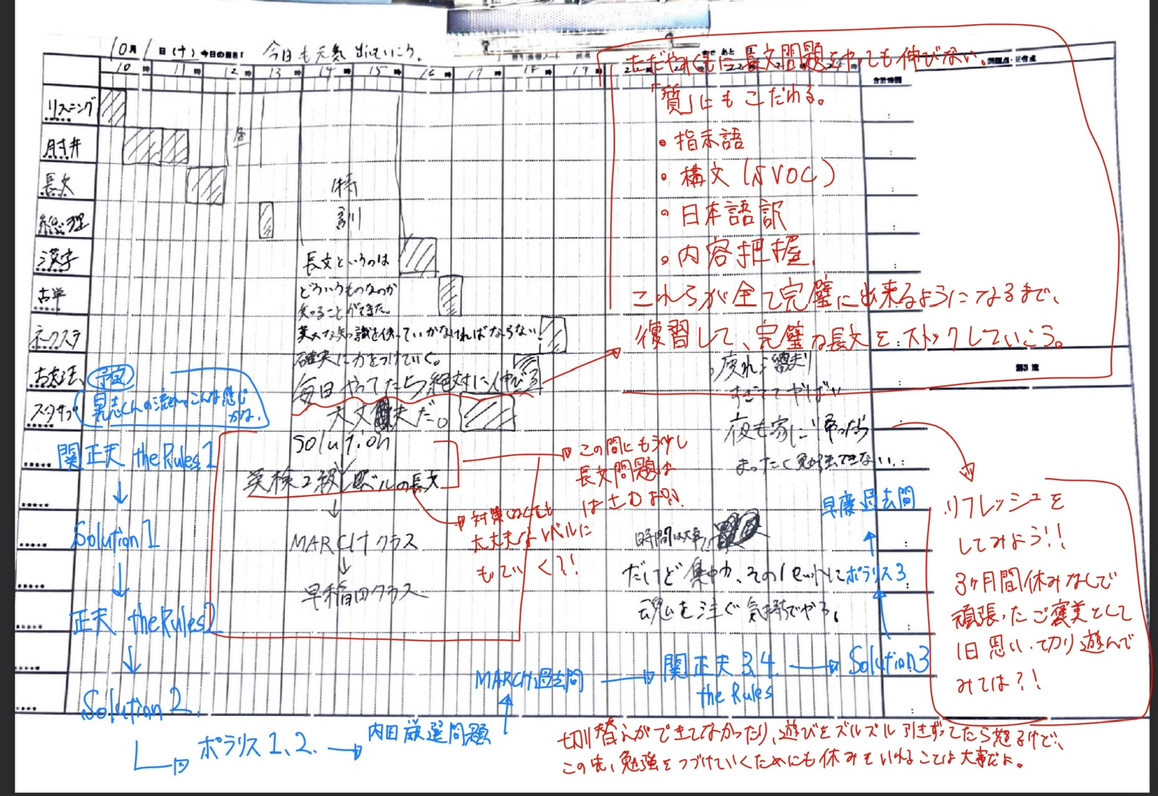 10月1日(十)今日の目標!
今日も元気出していこう。
10時 11時 12時 13時 14時 15時 16時 17時 18時 19時
合計時間
リスニング
長文
総理
漢字
古単
ネクステ
古文法
スタサプ
昼
特訓
長文というのは
どういうものなのか
知ることができた。
確実に力をつけていく。
毎日やってたら絶対に伸びる
大丈夫だ。
solution
↓
英検2級レベルの長文
↓
MARCHクラス
↓
早稲田クラス
ただやみくもに長文問題をやっても伸びない。
「質」にもこだわる。
・指示語
・構文(SVOC)
・日本語訳
・内容把握
これらが全て完璧に出来るようになるまで、
復習して、完璧な長文をストックしていこう。
すぎててやばい
夜も家に帰ったら
まったく勉強できない..
時間は大事
だけど集中力、その1セットに
魂を注ぐ気持ちでやる。
この間にも少し
長文問題は
はさむよ!!
対策しなくても
大丈夫なレベルに
もっていく?!
リフレッシュを
してみよう!!
3ヶ月間休みなしで
頑張ったご褒美として
1日思い切り遊んで
みては?!
予定
流れはこんな感じ
かな。
関正夫 the Rules 1
↓
Solution 1
↓
正夫 the Rules 2
↓
Solution 2
→ ポラリス1、2. →
内田厳選問題
↑
MARCH過去問
→ 関正夫 3,4
the Rules
→ Solution 3
↑
ポラリス3
↑
早慶過去問
切り替えができてなかったり、遊びをズルズル引きずってたら怒るけど、
この先、勉強をつづけていくためにも休みをいれることは大事だよ。